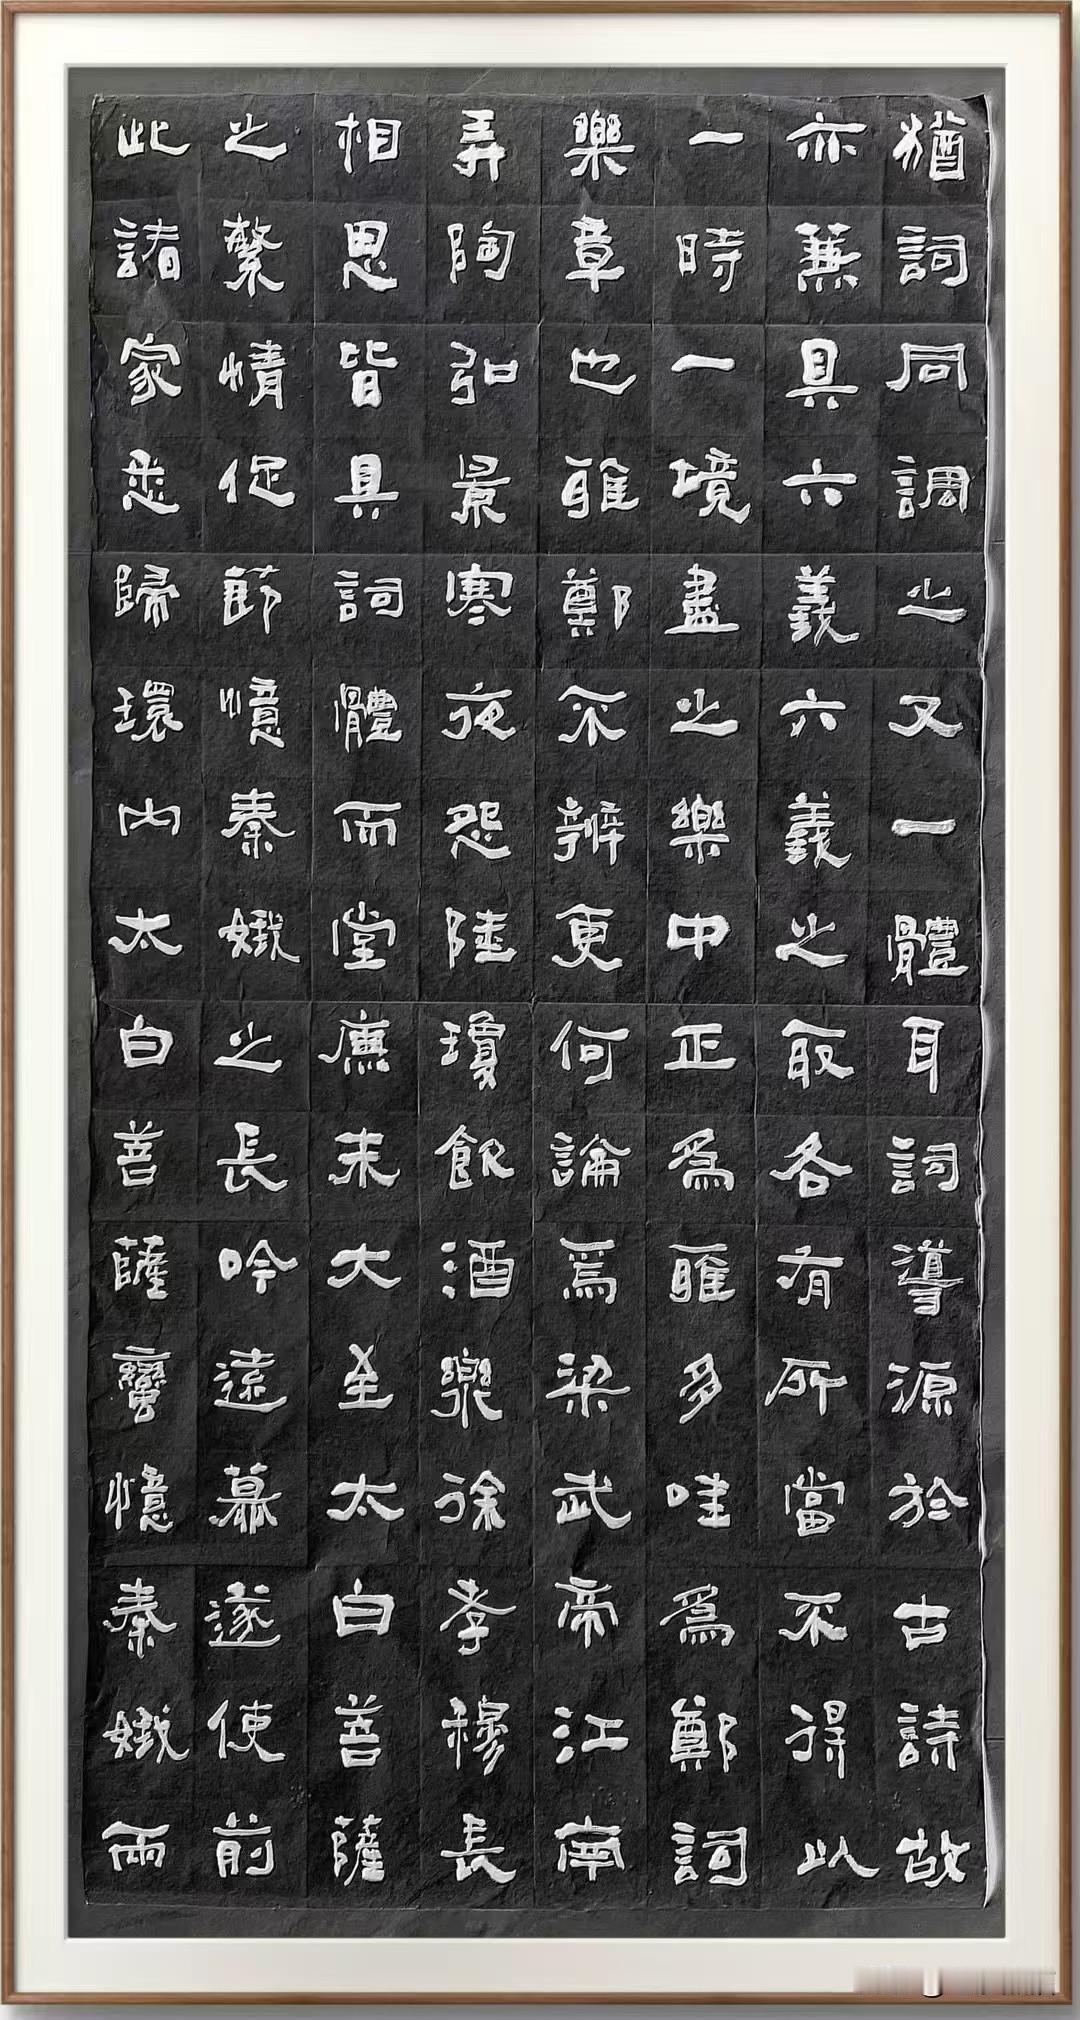 猶詞同調之又一體耳詞導源於古詩故
亦兼具六義六義之取各有所當不得以
一時一境盡之樂中正為雅多哇為鄭詞
樂章也雅鄭不辨更何論焉梁武帝江南
弄陶弘景寒夜怨陸瓊飲酒樂徐孝穆長
相思皆具詞體而堂廉未大至太白菩薩
之繁情促節憶秦娥之長吟遠慕遂使前
此諸家悉歸環內太白菩薩蠻憶秦娥兩